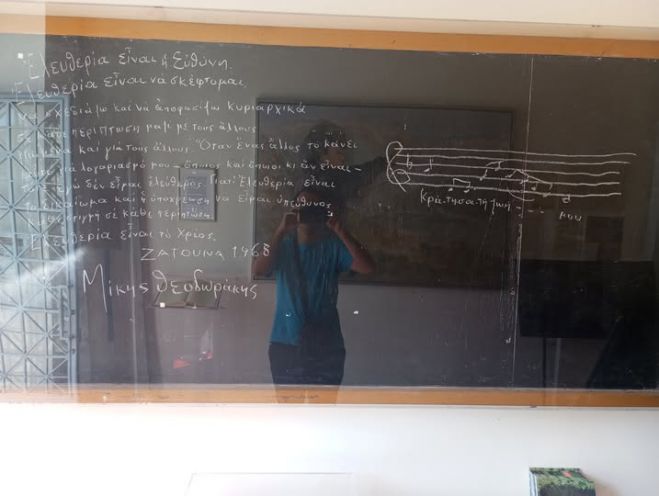 Ἐλευθερία εἶναι ἡ Εὐθύνη.
Ἐλευθερία εἶναι νὰ σκέφτομαι,
καὶ νὰ ἀποφασίζω κυριαρχικὰ
περίπτωση μαζὶ μὲ τοὺς ἄλλους
καὶ γιὰ τοὺς ἄλλους. Ὅταν ἕνας ἄλλος τὸ κάνει
γιὰ λογαριασμό μου – ὅποιος καὶ ὅποιοι κι ἂν εἶναι –
ἐγὼ δὲν εἶμαι ἐλεύθερος. Γιατὶ Ἐλευθερία εἶναι
τὸ δικαίωμα καὶ ἡ ὑποχρέωση νὰ εἶμαι ὑπεύθυνος
σὲ κάθε περίπτωση.
Ἐλευθερία εἶναι τὸ Χρέος.
ΖΑΤΟΥΝΑ 1968
Μίκης Θεοδωράκης
Κρά-τησα-τὴ ζωή - - - μου